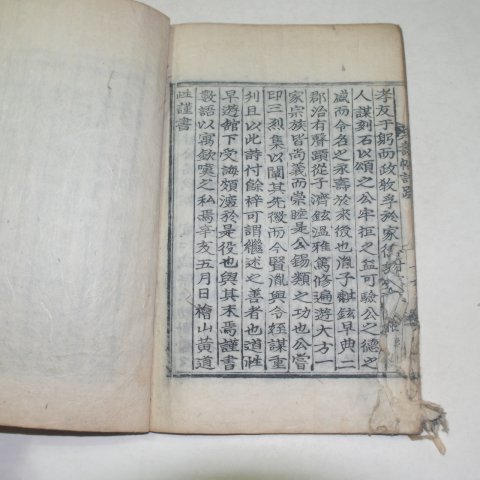 孝友于躬而政敎孚於家
人謀刻石以頌之公牢拒之益可驗公之德之
盛而令名之家壽於來後也胤子麒鉉早典二
郡治有聲頭從子濟鉉溫雅篤修遍遊大方一
家宗族皆尚義而崇睦是公錫類之功也公嘗
印三烈集以闡其先徽而今賢胤與令姪謀重
刋且以此詩付餘梓可謂繼述之善者也道
早遊舘下受誨頗濃於是役也與其末焉謹書
數語以寓歛襄之私焉辛亥五月日檜山黃道
謹書